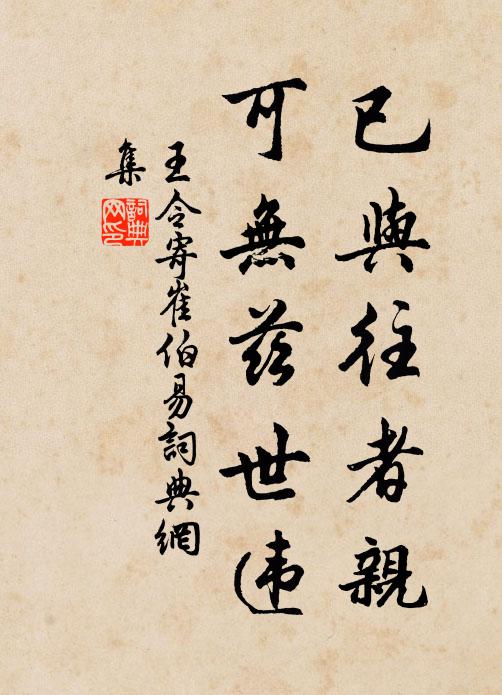 已與往者親
可無茲世违
王令寄崔伯易詞典網
集
詞典
网印